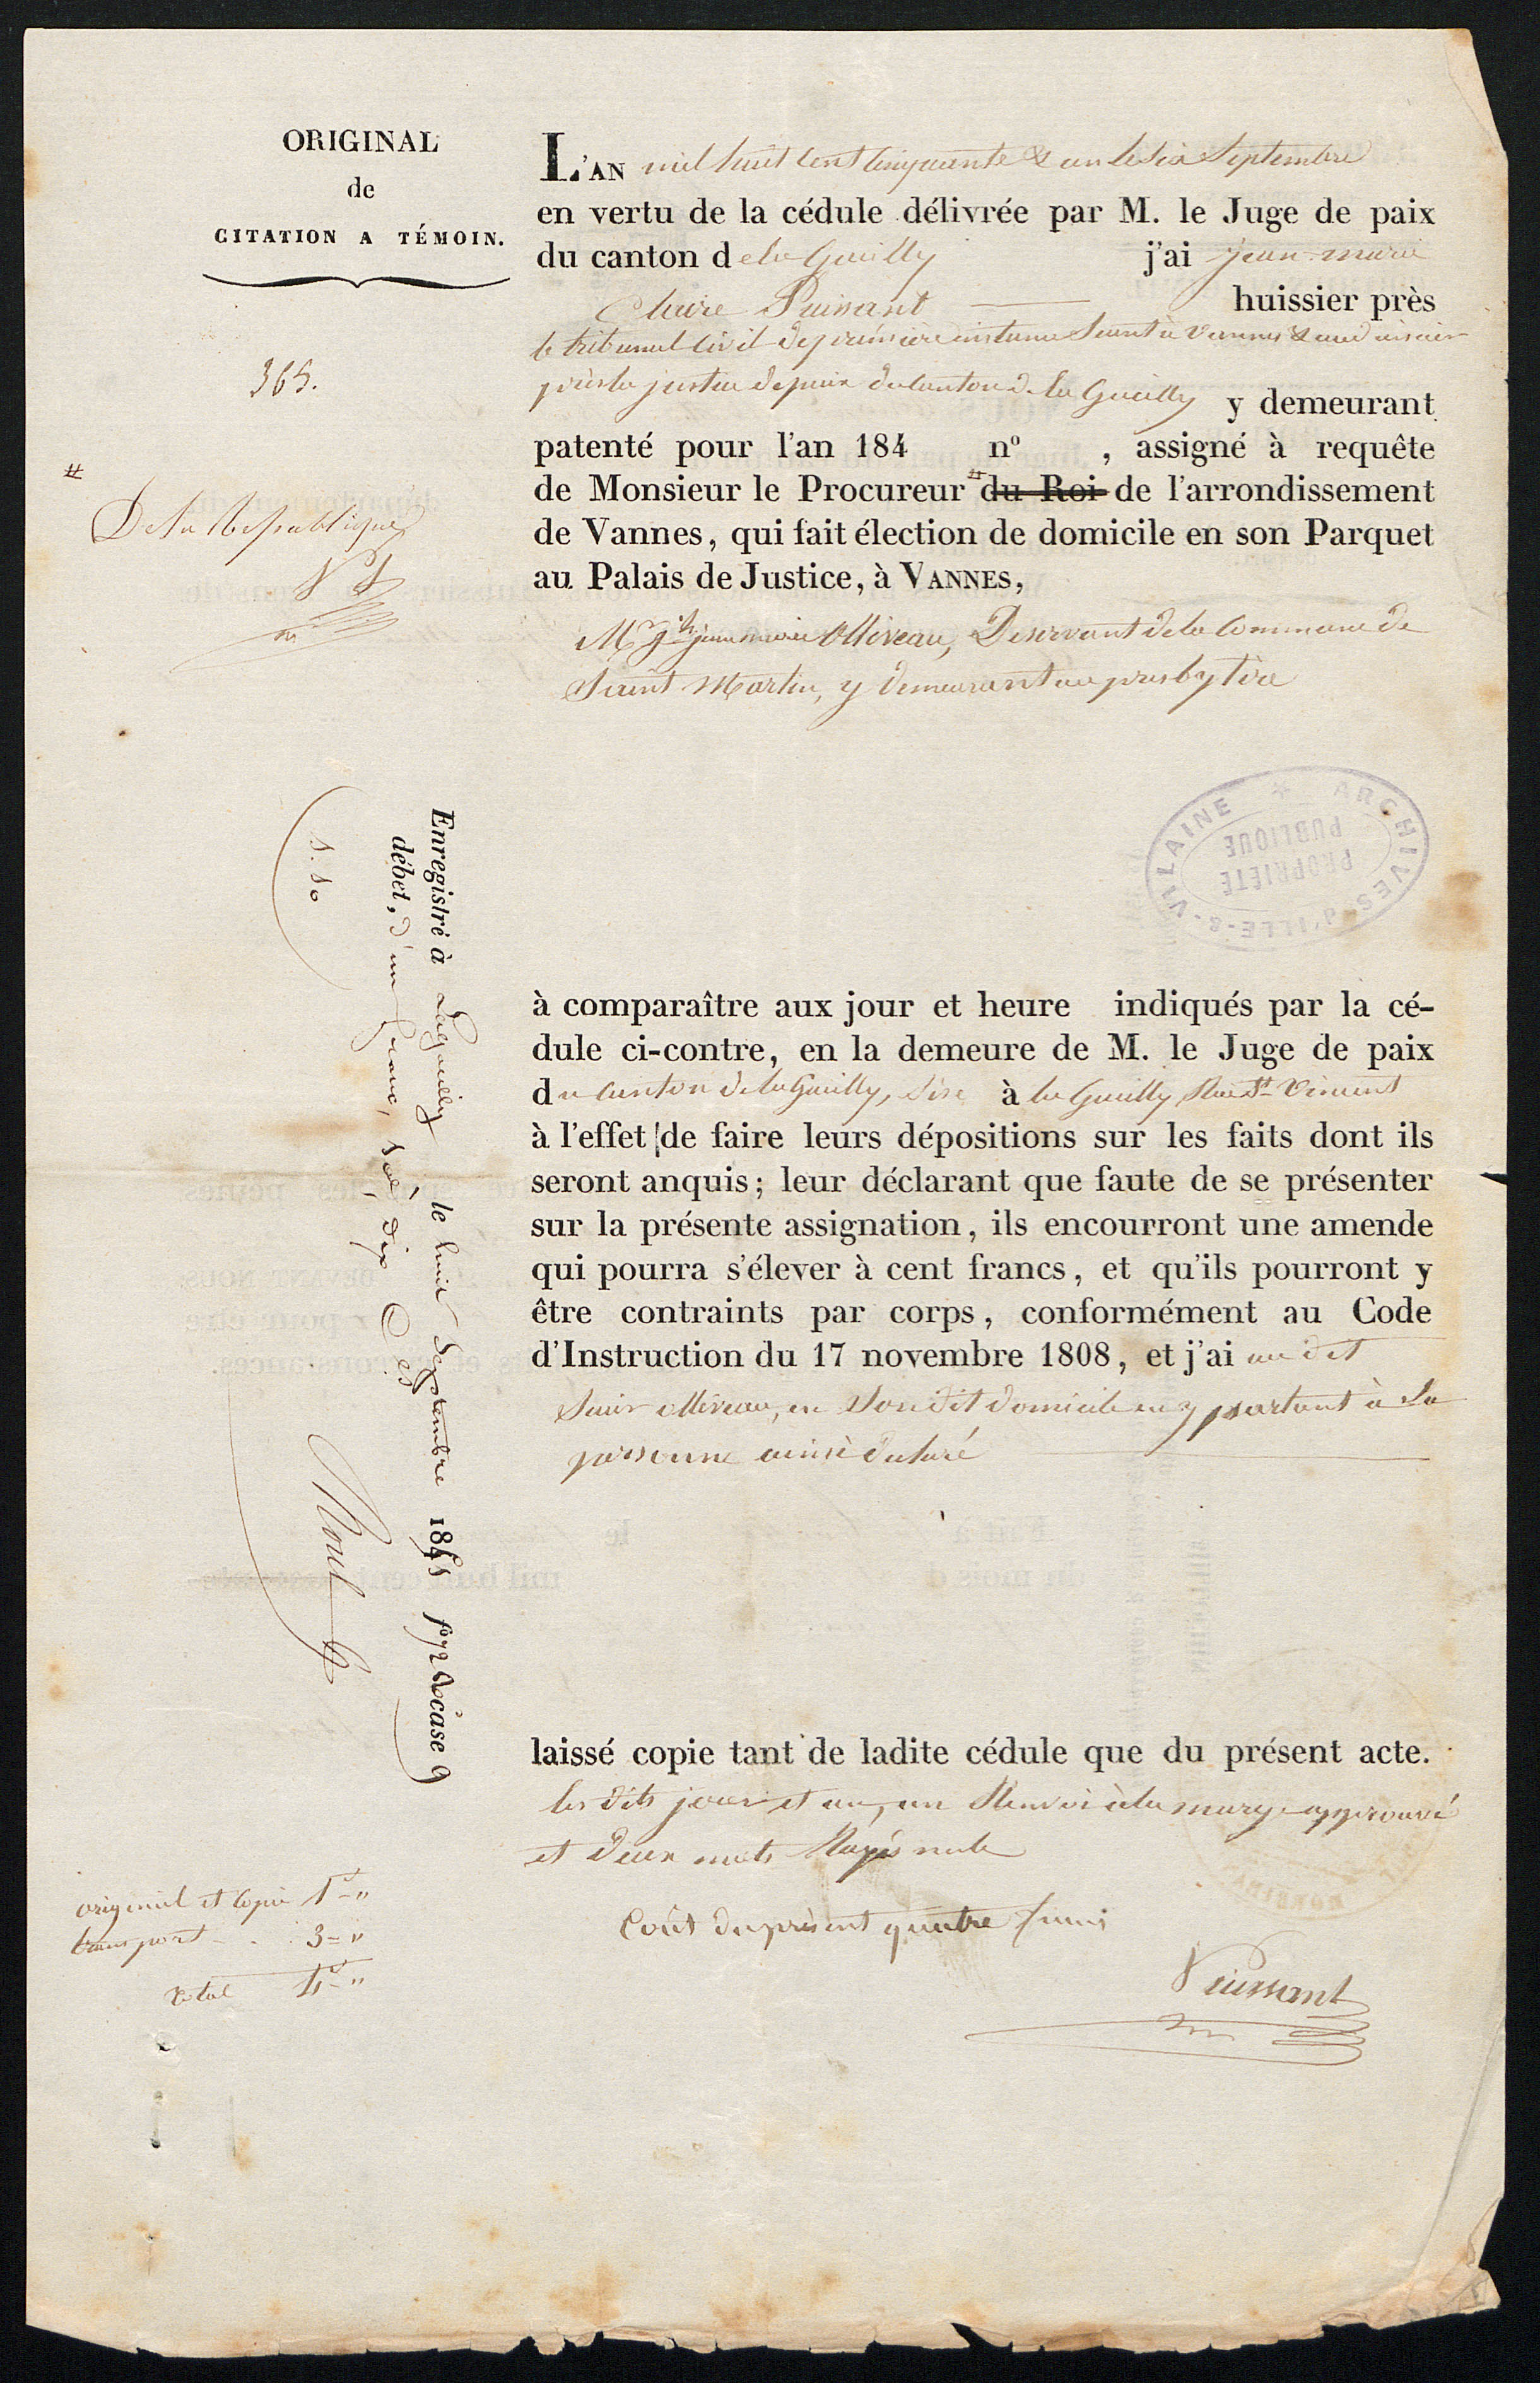 ORIGINAL
de
CITATION A TÉMOIN.
365.
#
De la République
L'AN mil huit cent cinquante & un le six Septembre
en vertu de la cédule délivrée par M. le Juge de paix
du canton de la Gacilly j'ai Jean-marie
Claire Puissant huissier près
le tribunal civil de première instance Séant à Vannes & audiencier
près la justice de paix du canton de la Gacilly y demeurant
patenté pour l'an 184 n° , assigné à requête
de Monsieur le Procureur # du Roi de l'arrondissement
de Vannes, qui fait élection de domicile en son Parquet
au Palais de Justice, à VANNES,
Mr jean marie Olliveau, Desservant de la Commune de
Saint Martin, y demeurant au presbytère
ARCHIVES D'ILLE-&-VILAINE
PROPRIÉTÉ
PUBLIQUE
à comparaître aux jour et heure indiqués par la cé-
dule ci-contre, en la demeure de M. le Juge de paix
du canton de la Gacilly, sise à la Gacilly Rue St Vincent
à l'effet de faire leurs dépositions sur les faits dont ils
seront anquis; leur déclarant que faute de se présenter
sur la présente assignation, ils encourront une amende
qui pourra s'élever à cent francs, et qu'ils pourront y
être contraints par corps, conformément au Code
d'Instruction du 17 novembre 1808, et j'ai au dit
Sieur Olliveau, en Son dit domicile en y parlant à Sa
personne ainsi déclaré
laissé copie tant de ladite cédule que du présent acte.
les dits jour et an, un Renvoi à la marge approuvé
et deux mots Rayés nuls
Coût du présent quatre francs
Puissant
Enregistré à Lagacilly le huit Septembre 1851 fo 72 Ro case 9
débet, d'un franc, dix Ces
1.10
original et copie 1 "
transport 3 = "
total 4 "